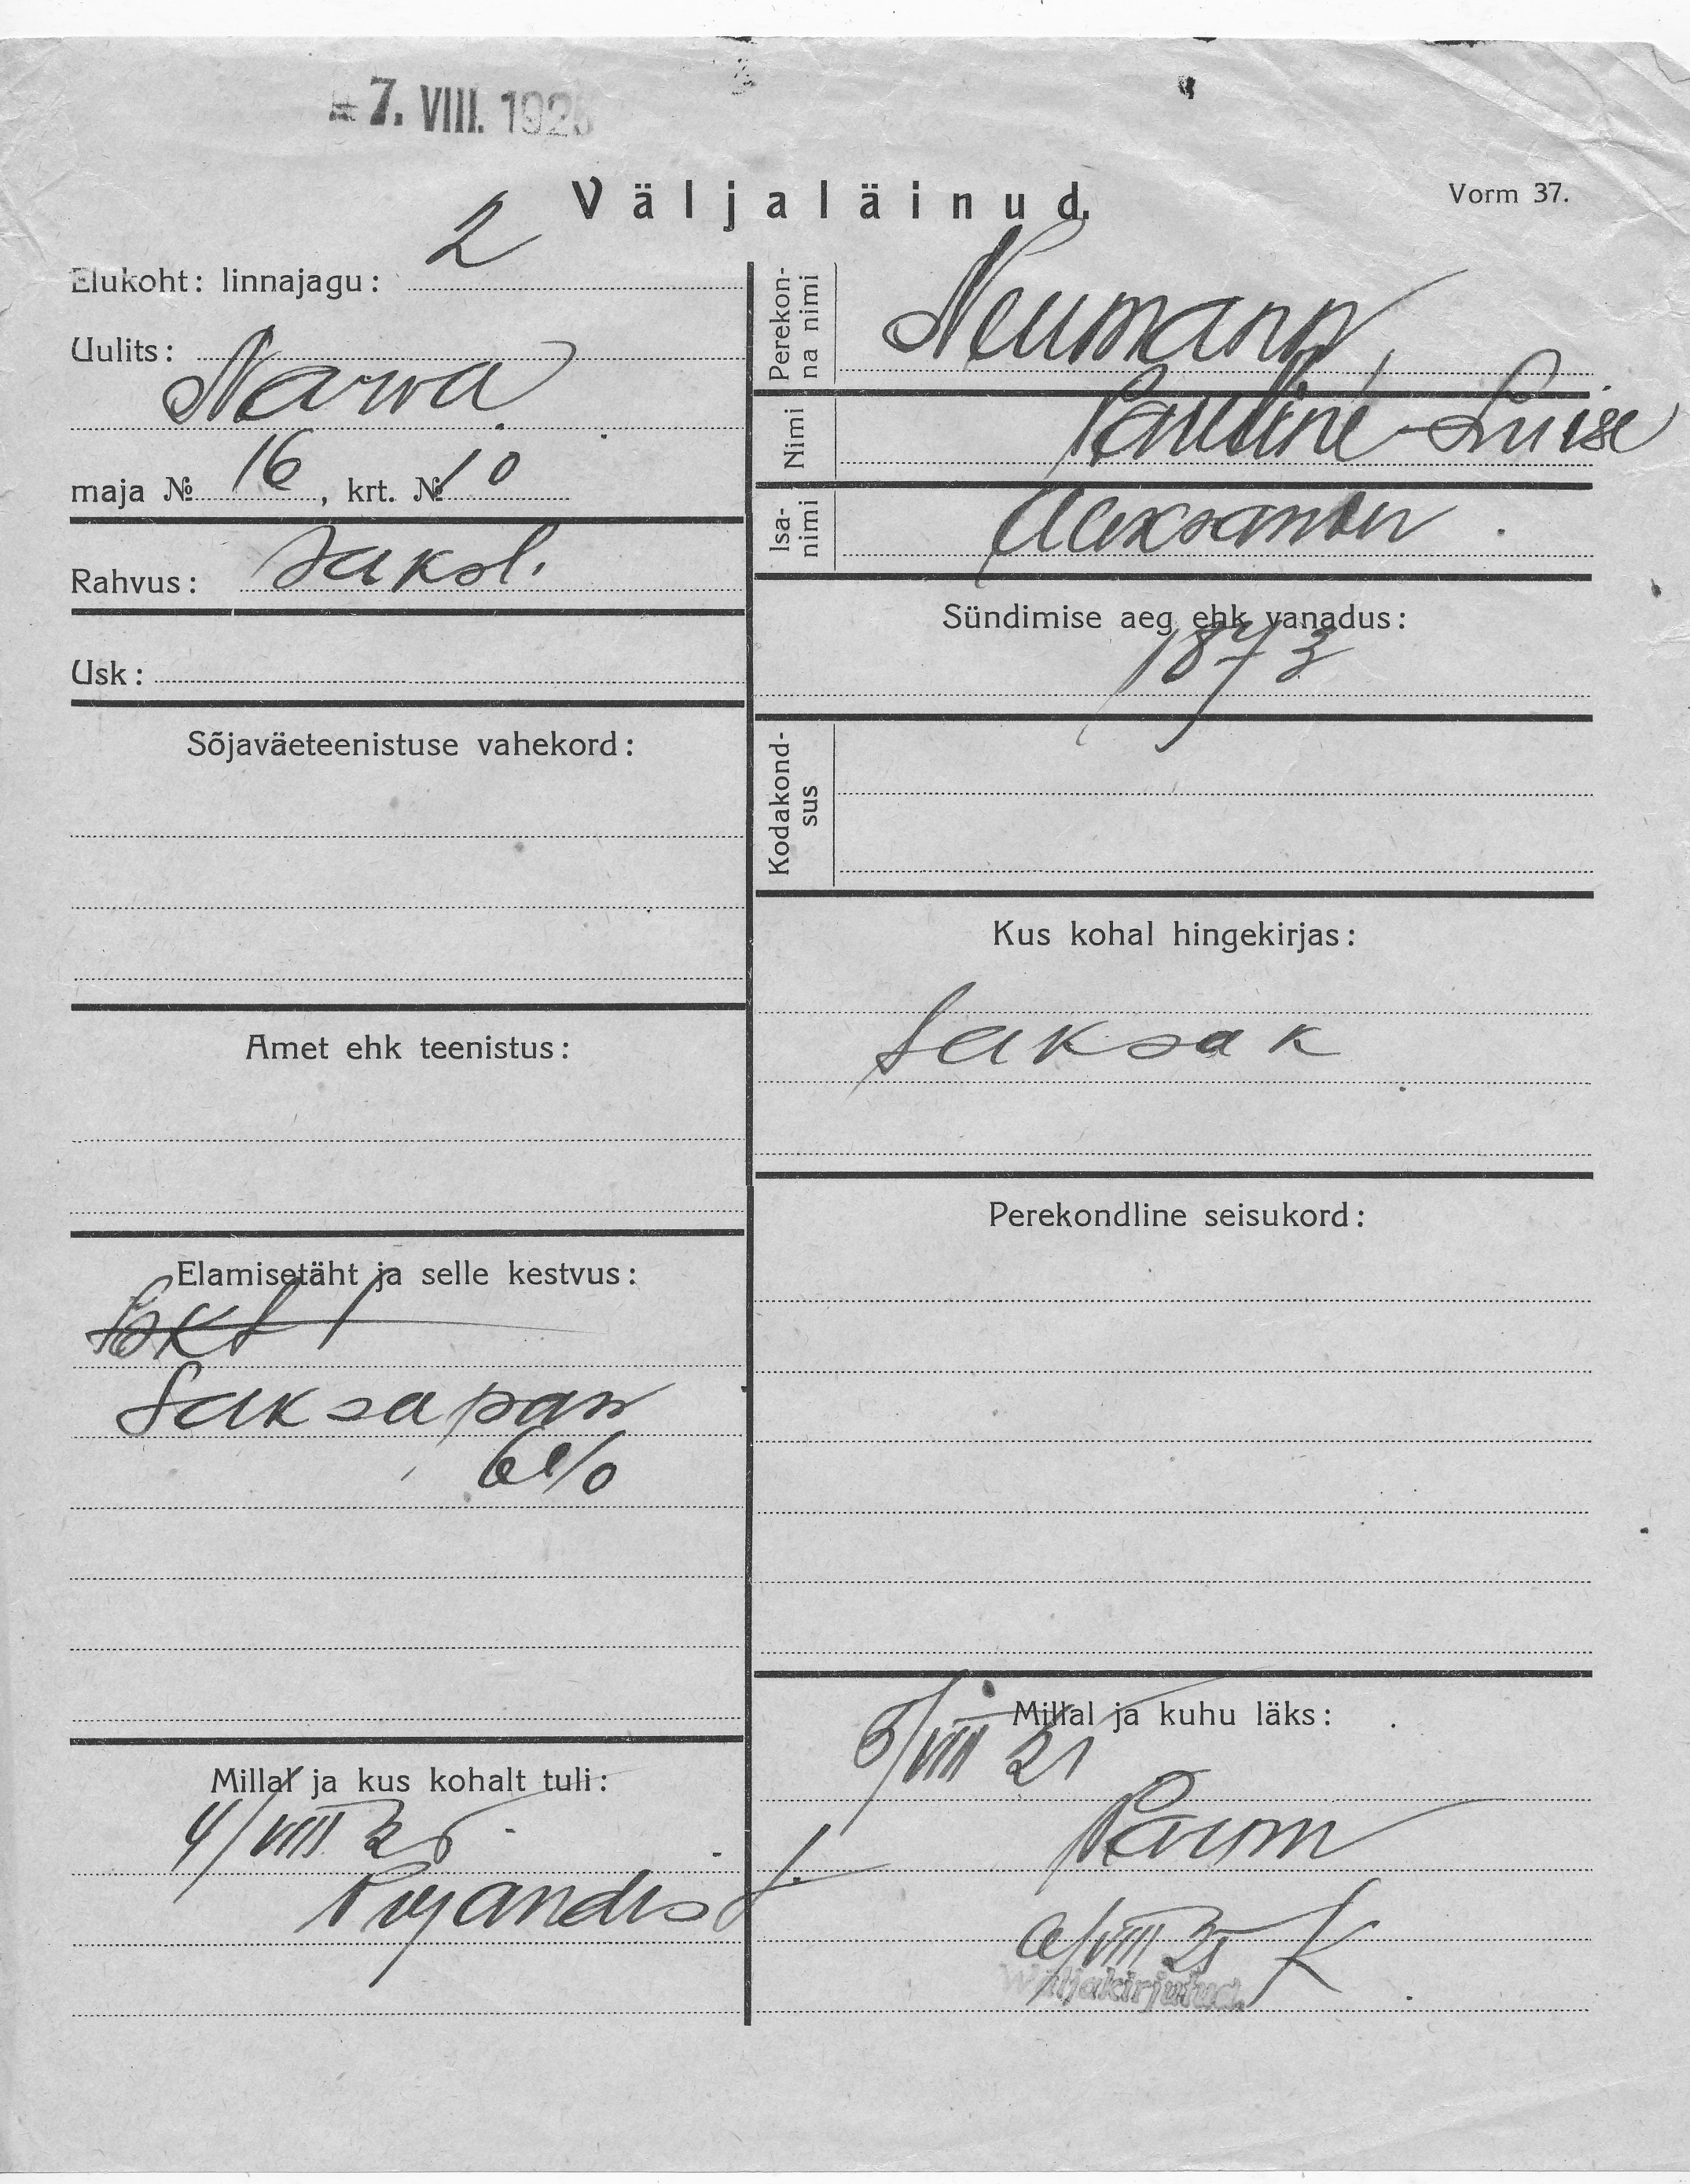 7. VIII. 1925
Väljaläinud.
Vorm 37.
Elukoht: linnajagu: 2
Uulits:
Narva
maja № 16, krt. № 10
Rahvus: saksl.
Usk:
Sõjaväeteenistuse vahekord:
Amet ehk teenistus:
Elamisetäht ja selle kestvus:
Saksa pass
Millal ja kus kohalt tuli:
4/VIII 25.
Perekonna nimi
Neumann,
Nimi
Pauline-Luise
Isanimi
Alexsander
Sündimise aeg ehk vanadus:
1873
Kodakondsus
Kus kohal hingekirjas:
Saksak
Perekondline seisukord:
Millal ja kuhu läks:
5/VIII 25
Pärnu
VIII 25 K
Wäljakirjutud.